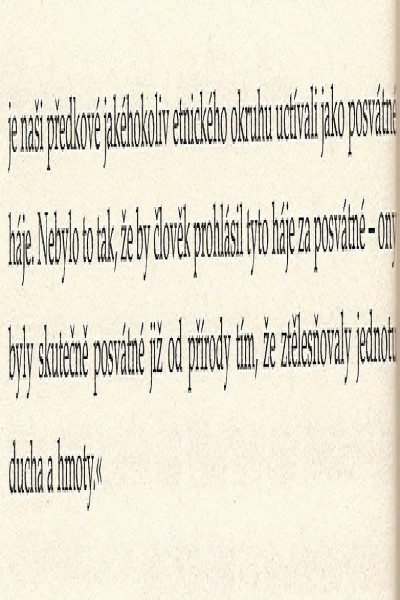 je naši předkové jakéhokoliv etnického okruhu uctívali jako posvátné
háje. Nebylo to tak, že by člověk prohlásil tyto háje za posvátné – ony
byly skutečně posvátné již od přírody tím, že ztělesňovaly jednotu
ducha a hmoty.«